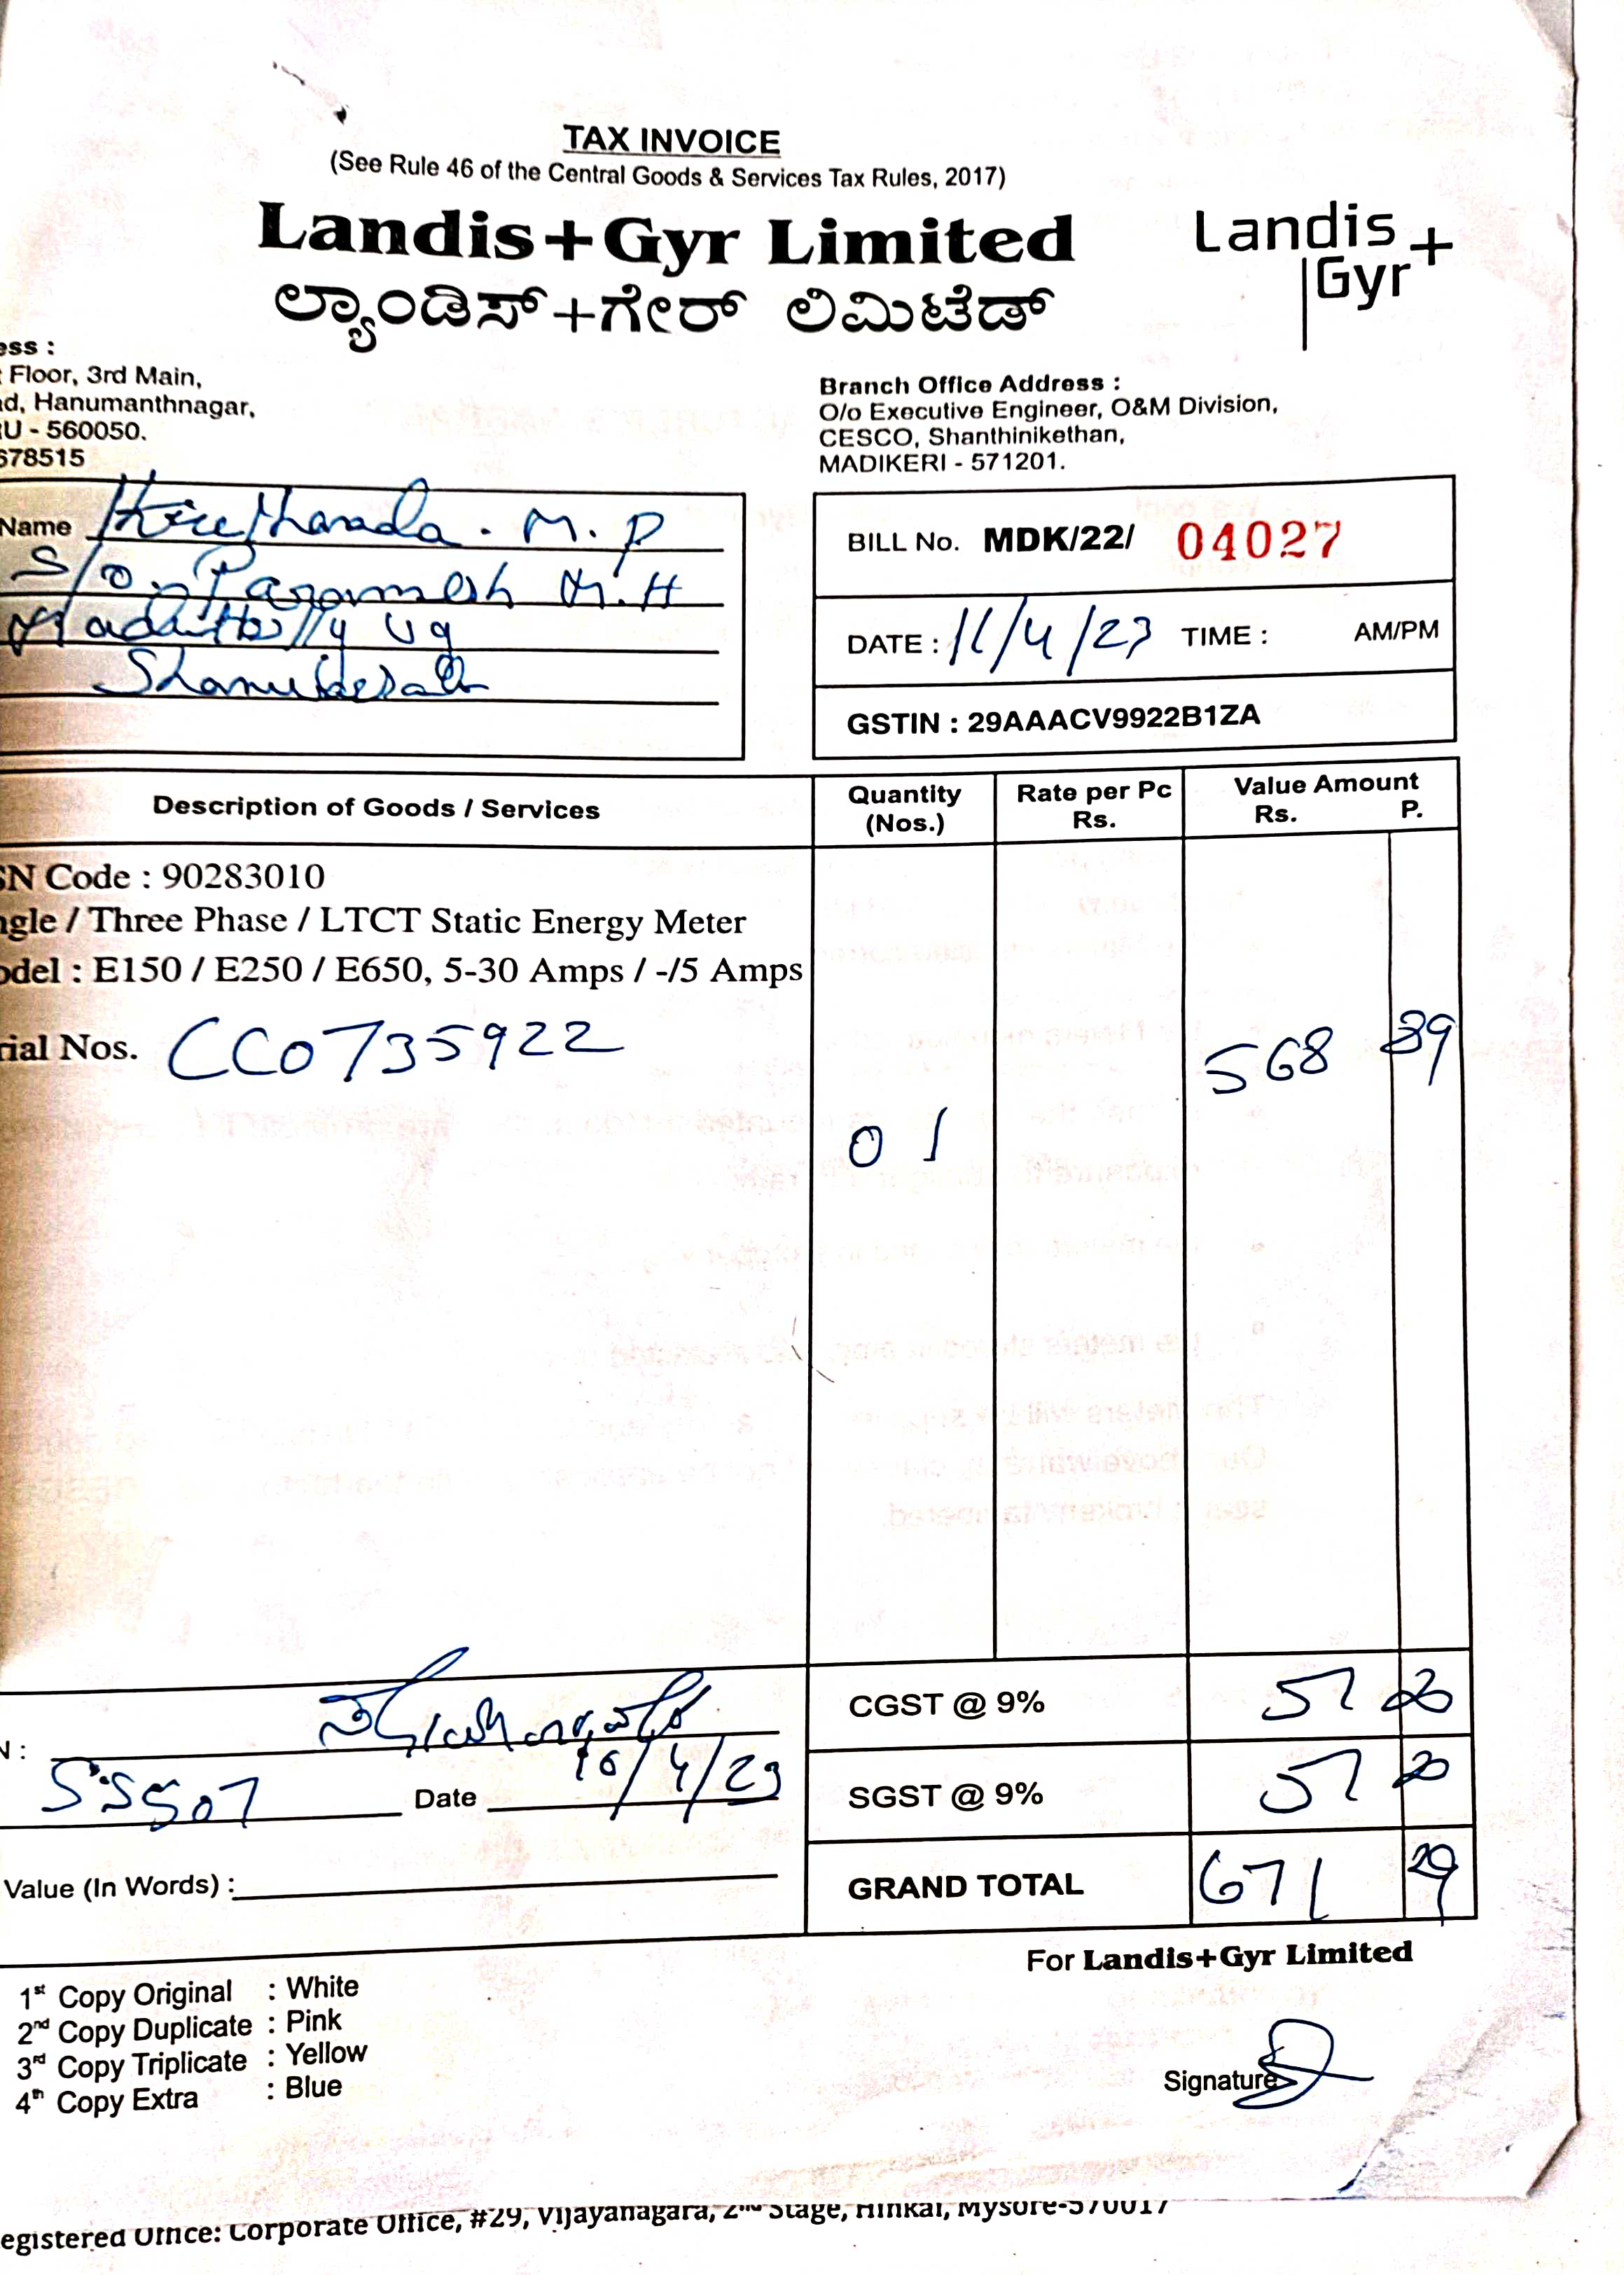 TAX INVOICE
(See Rule 46 of the Central Goods & Services Tax Rules, 2017)
Landis+Gyr Limited
ಲ್ಯಾಂಡಿಸ್+ಗೇರ್ ಲಿಮಿಟೆಡ್
Landis+
Gyr
ess :
Floor, 3rd Main,
d, Hanumanthnagar,
U - 560050.
678515
Branch Office Address :
O/o Executive Engineer, O&M Division,
CESCO, Shanthinikethan,
MADIKERI - 571201.
Name M.P
S/o. M.H
BILL No. MDK/22/ 04027
DATE : 11/4/23 TIME : AM/PM
GSTIN : 29AAACV9922B1ZA
Description of Goods / Services
Quantity (Nos.)
Rate per Pc Rs.
Value Amount
Rs. P.
SN Code : 90283010
ngle / Three Phase / LTCT Static Energy Meter
odel : E150 / E250 / E650, 5-30 Amps / -/5 Amps
rial Nos. CC0735922
568 89
01
CGST @ 9% 51 20
SGST @ 9% 51 20
GRAND TOTAL 671 29
N :
Date 10/4/23
Value (In Words) :
For Landis+Gyr Limited
1st Copy Original : White
2nd Copy Duplicate : Pink
3rd Copy Triplicate : Yellow
4th Copy Extra : Blue
Signature
egistered Office: Corporate Office, #29, Vijayanagara, 2nd Stage, Hinkal, Mysore-570017